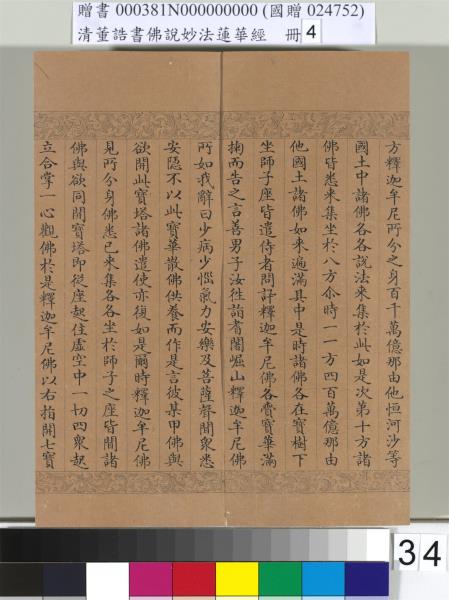 贈書 000381N000000000 (國贈 024752)
清董誥書佛說妙法蓮華經 冊 4
方釋迦牟尼所分之身百千萬億那由他恒河沙等
國土中諸佛各各說法來集於此如是次第十方諸
佛皆悉來集坐於八方尒時一一方四百萬億那由
他國土諸佛如來遍滿其中是時諸佛各在寶樹下
坐師子座皆遣侍者問訊釋迦牟尼佛各賷寶華滿
掬而告之言善男子汝徃詣耆闍崛山釋迦牟尼佛
所如我辭曰少病少惱氣力安樂及菩薩聲聞衆悉
安隱不以此寶華散佛供養而作是言彼某甲佛與
欲開此寶塔諸佛遣使亦復如是爾時釋迦牟尼佛
見所分身佛悉已來集各各坐於師子之座皆聞諸
佛與欲同開寶塔即從座起住虛空中一切四衆起
立合掌一心觀佛於是釋迦牟尼佛以右指開七寶
34